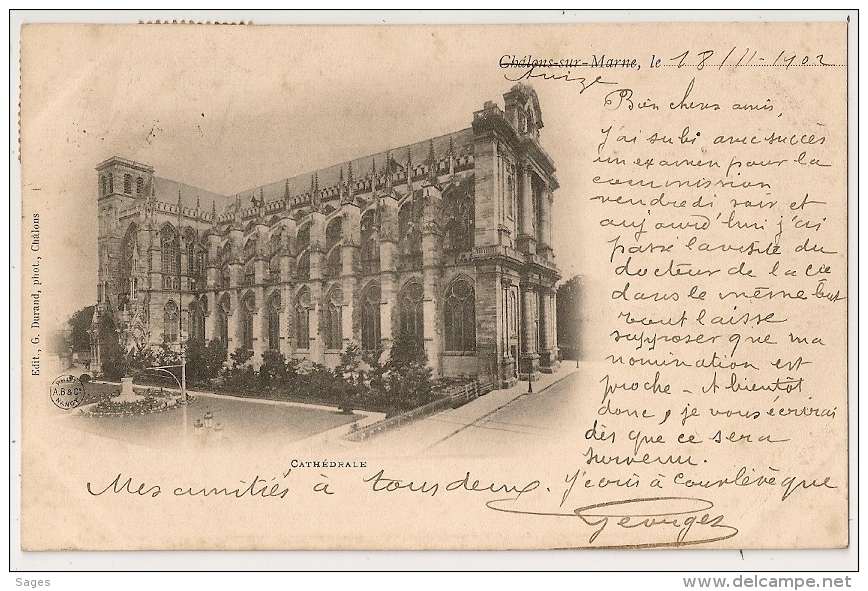 Châlons-sur-Marne, le 18/11-1902
Avize
Bien chers amis,
j'ai subi avec succès
un examen pour la
commission
vendredi soir et
aujourd'hui j'ai
passé la visite du
docteur de la cie
dans le même but
tout laisse
supposer que ma
nomination est
proche - A bientôt
donc, je vous écrirai
dès que ce sera
survenu.
Mes amitiés à tous deux. J'écris à Courlévêque
Georges
Edit., G. Durand, phot., Châlons
A.B & Cie
NANCY
CATHÉDRALE
Sages
http://www.delcampe.net